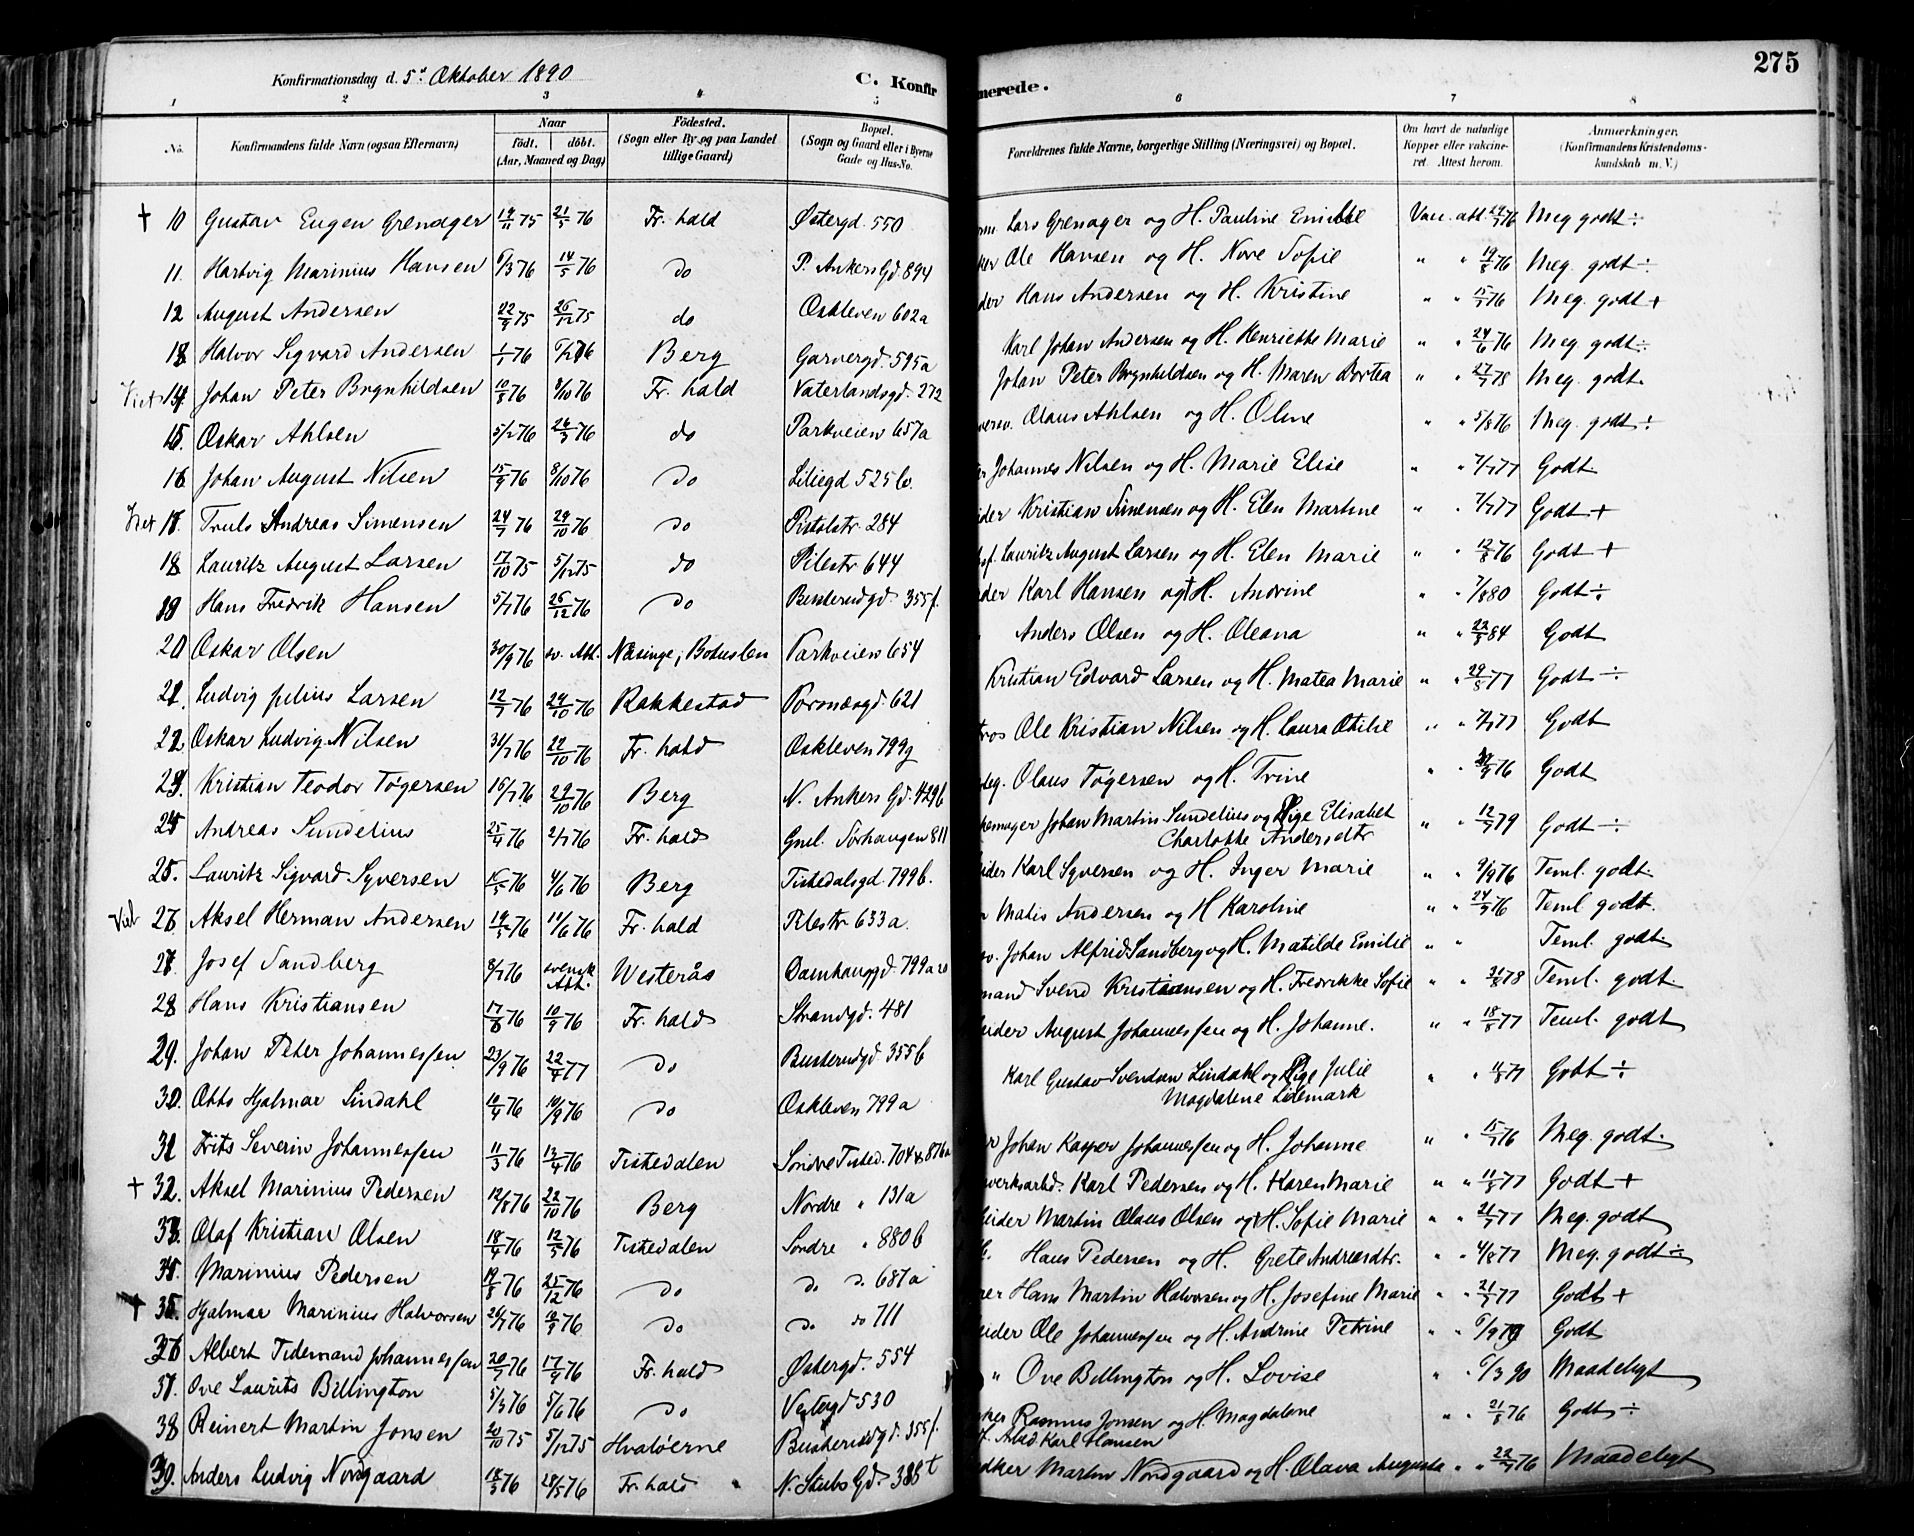 275
Konfirmationsdag d. 5te Oktober 1890 C. Konfir merede.
1 2 3 4 5 6 7 8
No. Konfirmandens fulde Navn (ogsaa Efternavn) Naar Födt. döbt. (Aar, Maaned og Dag) Födested. (Sogn eller By og paa Landet tillige Gaard) Bopæl. (Sogn og Gaard eller i Byerne Gade og Hus-No. Forældrenes fulde Navne, borgerlige Stilling (Næringsvei) og Bopæl. Om havt de naturlige Kopper eller vakcineret. Attest herom. Anmærkninger. (Konfirmandens Kristendomskundskab m. V.)
† 10 Gustav Eugen Grenager 19/11 75 21/5 76 Fr. hald Østergd. 550 Lars Grenager og H. Pauline Emilie Vacc. att. 76 Meg godt ÷
11. Hartvig Marinius Hansen 6/3 76 14/5 76 do P. Ankers Gd. 894 Ole Hansen og H. Nove Sofie " " 19/8 76 Meg. godt ÷
12 August Andersen 22/9 75 26/12 75 do Oskleven 602a Hans Andersen og H. Kristine " " 15/7 76 Meg. godt +
13 Halvor Sigvard Andersen 1/1 76 Berg Garvergd. 595a Karl Johan Andersen og H. Henriette Marie " " 24/6 76 Meg godt ÷
14. Johan Peter Brynhildsen 10/8 76 8/10 76 Fr. hald Vaterlandsgd. 272 Johan Peter Brynhildsen og H. Maren Dortea " " 27/7 78 Meg. godt.
15 Oskar Ahlsen 5/1 76 26/3 76 do Parkveien 657a Olaus Ahlsen og H. Oline " " 5/8 76 Meg. godt ÷
16 Johan August Nilsen 15/9 76 8/10 76 do Liliegd 525 b. Johannes Nilsen og H. Marie Elise " " 7/7 77 Godt.
17. Truls Andreas Simensen 24/7 76 29/10 76 do Pistolstr. 284 Kristian Simensen og H. Elen Martine " " 7/7 77 Godt +
18 Lauritz August Larsen 17/10 75 5/12 75 do Pilestr 644 Lauritz August Larsen og H. Elen Marie " " 12/8 76 Godt +
19 Hans Fredrik Hansen 5/7 76 26/12 76 do Busterudgd. 355f. Karl Hansen og † H. Andrine " " 7/8 80 Godt ÷
20 Oskar Olsen 30/9 76 sv. Att. Næsinge, Bohuslen Parkveien 654 Anders Olsen og H. Oleana " " 22/8 84 Godt
21. Ludvig Julius Larsen 12/7 76 24/10 76 Rakkestad 621 Kristian Edvard Larsen og H. Matea Marie " " 29/8 77 Godt ÷
22. Oskar Ludvig Nilsen 31/7 76 22/10 76 Fr. hald Oskleven 799g Ole Kristian Nilsen og H. Laura Otilie " " 7/7 77 Godt
23. Kristian Teodor Tøgersen 16/7 76 29/10 76 Berg N. Ankers Gd. 429b Olaus Tøgersen og H. Trine " " 76 Godt
24 Andreas Sundelius 25/4 76 2/7 76 Fr. hald Gml. Torhaugen 811 Johan Martin Sundelius og Pige Elisabet Charlotte Andersdtr " " 12/7 79 Godt ÷
25. Lauritz Sigvard Syversen 16/5 76 4/6 76 Berg Tistedalsgd. 799b. Karl Syversen og H. Inger Marie " " 9/9 76 Teml. godt.
26 Aksel Herman Andersen 19/5 76 11/6 76 Fr. hald Pilestr 633a. Matis Andersen og H Karoline " " 24/9 76 Teml godt.
27. Josef Sandberg 8/7 76 svensk Att. Westerås Damhaugd. 799a Johan Alfrid Sandberg og H. Matilde Emilie " " Teml. godt.
28 Hans Kristiansen 17/6 76 10/9 76 Fr. hald Strandgd. 481 Svend Kristiansen og H. Fredrikke Sofie " " 31/8 78 Teml. godt
29. Johan Peter Johannessen. 23/9 76 22/4 77 do Busterudgd. 355b August Johannessen og H. Johanne. " " 18/8 77 Teml. godt
30. Otto Hjalmar Lindahl 19/4 76 10/9 76 do Oskleven 799a Karl Gustav Svendsen Lindahl og Pige Julie Magdalene Lidemark " " 77 Godt ÷
31 Frits Severin Johannessen 11/3 76 13/4 76 Tistedalen Søndre Tisted. 704 & 876a Johan Kasper Johannessen og H. Johanne " " 15/7 76 Meg. godt.
† 32. Aksel Marinius Pedersen 12/8 76 22/10 76 Berg Nordre " 131a Karl Pedersen og H. Karen Marie " " 11/8 77 Godt +
33. Olaf Kristian Olsen 18/4 76 12/5 76 Tistedalen Søndre " 880b Martin Olaus Olsen og † H. Sofie Marie " " 21/7 77 Meg. godt
34. Marinius Pedersen 19/8 76 25/12 76 do do do 687a Hans Pedersen og H. Grete Andreasdtr. " " 4/8 77 Meg. godt ÷
† 35. Hjalmar Marinius Halvorsen 26/7 76 10/9 76 do do do 711 Hans Martin Halvorsen og H. Josefine Marie " " 21/7 77 Godt +
36 Albert Tidemand Johannessen 20/7 76 17/9 76 Fr. hald Østergd. 554 Ole Johannessen og H. Andrine Petrine " " 6/9 79 Godt
37. Ove Laurits Billington 5/3 76 5/6 76 do Vestergd 530 " Ove Billington og H. Lovise " " 6/3 90 Maadeligt
38 Reinert Martin Jonsen 20/10 75 5/12 75 Hvaløerne Busterudgd. 355f. Rasmus Jonsen og H. Magdalene " " 21/8 76 Godt ÷
Arbd Karl Hansen
39. Anders Ludvig Nordgaard 18/3 76 28/5 76 Fr. hald N. Stubs Gd. 386 Martin Nordgaard og H. Olava Augusta " " 22/7 76 Maadeligt